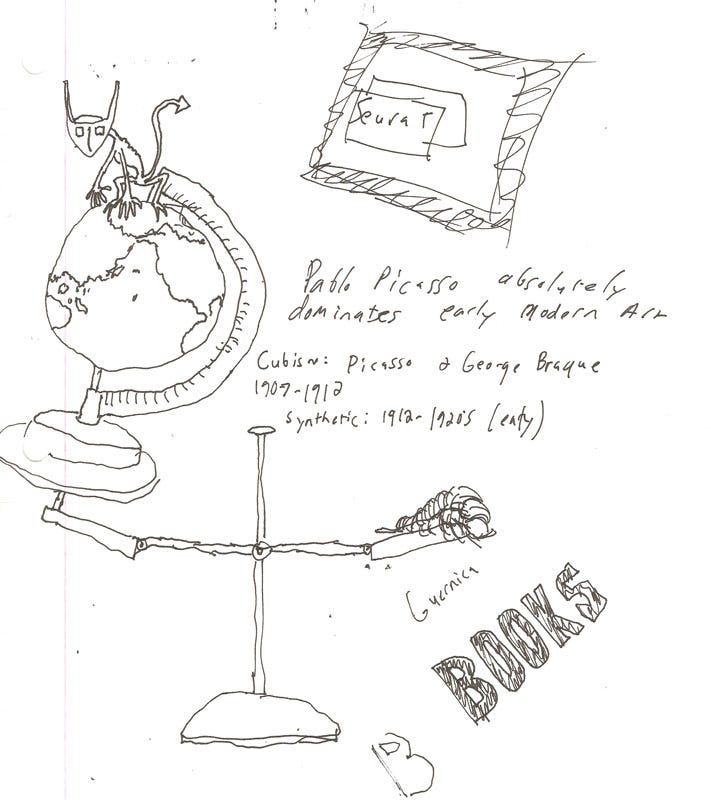 Seurat
Pablo Picasso absolutely
dominates early Modern Art
Cubism: Picasso & George Braque
1907-1912
Synthetic: 1912-1920s (early)
Guernica
BOOKS
B